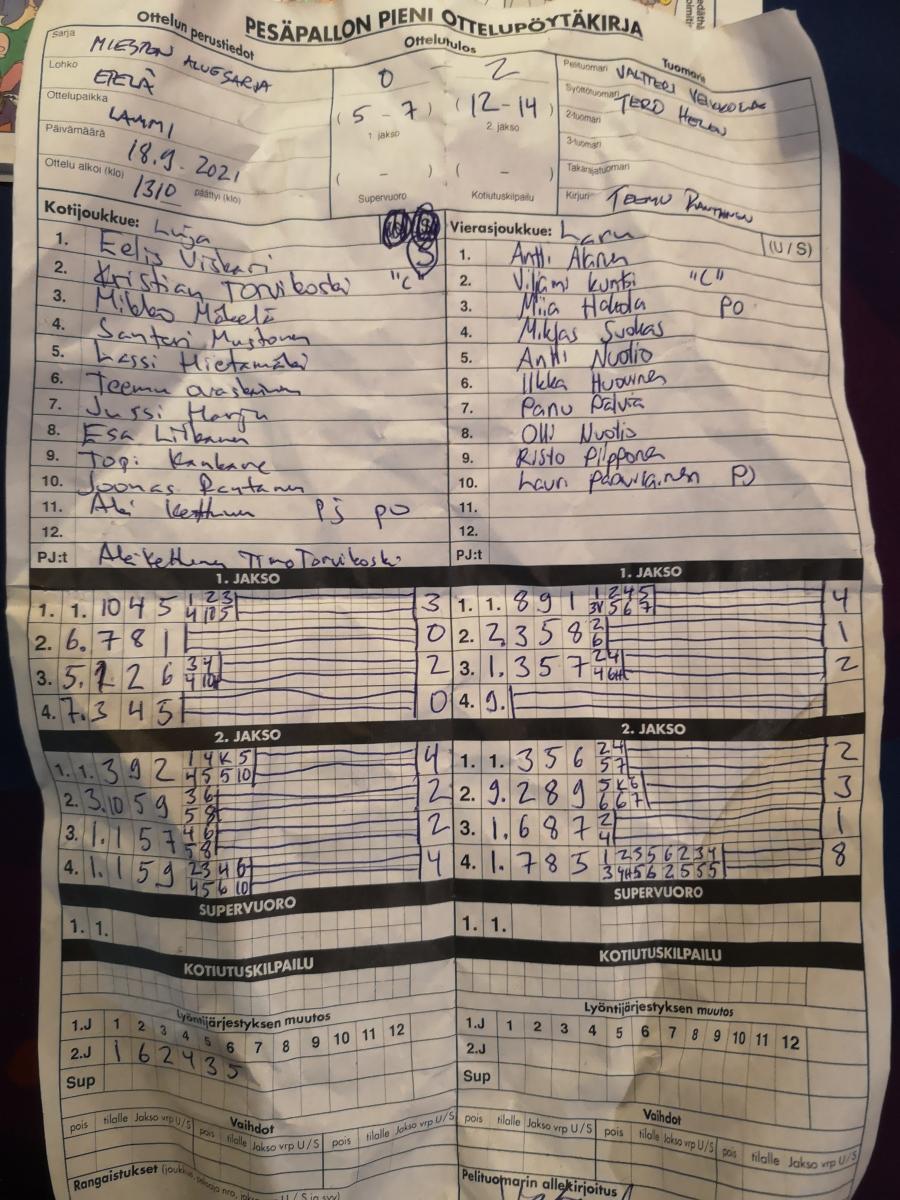 PESÄPALLON PIENI OTTELUPÖYTÄKIRJA
Ottelun perustiedot
Sarja MIESTEN ALUESARJA
Lohko ETELÄ
Ottelupaikka LAMMI
Päivämäärä 18.9.2021
Ottelu alkoi (klo) 1310 päättyi (klo)
Ottelutulos
0 - 2
(5 - 7) (12 - 14)
1. jakso 2. jakso
( - ) ( - )
Supervuoro Kotiutuskilpailu
Tuomarit
Pelituomari VALTTERI
Syöttötuomari TERO
2-tuomari
3-tuomari
Takarajatuomari
Kirjuri TEEMU RANTANEN
Kotijoukkue: Luja
1. Eelis Viskari
2. Kristian Torvikoski "C"
3. Mikko Mäkelä
4. Santeri Mustonen
5. Lassi Hietamäki
6. Teemu
7. Jussi Harju
8. Esa Litkanen
9. Topi Kankare
10. Joonas Rantanen
11. Aki Kettunen PJ PO
12.
PJ:t Aki Kettunen Timo Torvikoski
Vierasjoukkue: Laru (U / S)
1. Antti Alanen
2. Viljami Kuntsi "C"
3. Miia Hakola PO
4. Miklas Suokas
5. Antti Nuolio
6. Ilkka Huovinen
7. Panu Palvia
8. Olli Nuolio
9. Risto Piipponen
10. Lauri PJ
11.
12.
PJ:t
1. JAKSO
1. 1. 10 4 5 3
2. 6. 7 8 1 0
3. 5. 1 2 6 2
4. 7. 3 4 5 0
2. JAKSO
1. 1. 3 9 2 1 4 K 5 4
4 5 5 10
2. 3. 10 5 9 3 6 2
5 8
3. 1. 1 5 7 4 6 2
5 8
4. 1. 1 5 9 2 3 4 6 4
4 5 6 10
SUPERVUORO
1. 1.
KOTIUTUSKILPAILU
Lyöntijärjestyksen muutos
1.J 1 2 3 4 5 6 7 8 9 10 11 12
2.J 1 6 2 4 3 5
Sup
Vaihdot
pois tilalle Jakso vrp U / S pois tilalle Jakso vrp U / S pois tilalle Jakso vrp U / S
Rangaistukset
1. JAKSO
1. 1. 8 9 1 1 2 4 5 4
3V 5 6 7
2. 2. 3 5 8 2 1
6
3. 1. 3 5 7 2 4 2
4. 9.
2. JAKSO
1. 1. 3 5 6 2 4 2
5 7
2. 9. 2 8 9 5 K 6 3
6 6 7
3. 1. 6 8 7 2 1
4
4. 1. 7 8 5 1 2 5 5 6 2 3 4 8
SUPERVUORO
1. 1.
KOTIUTUSKILPAILU
Lyöntijärjestyksen muutos
1.J 1 2 3 4 5 6 7 8 9 10 11 12
2.J
Sup
Vaihdot
pois tilalle Jakso vrp U / S pois tilalle Jakso vrp U / S pois tilalle Jakso vrp U / S
Pelituomarin allekirjoitus